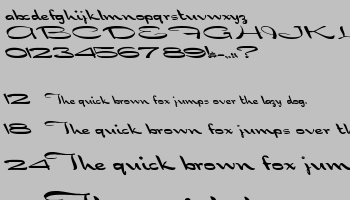 abcdefghijklmnopqrstuvwxyz
ABCDEFGHIJKL
01234567 89!.-,.:;?
12 The quick brown fox jumps over the lazy dog.
18 The quick brown fox jumps over the
24 The quick brown fox jum